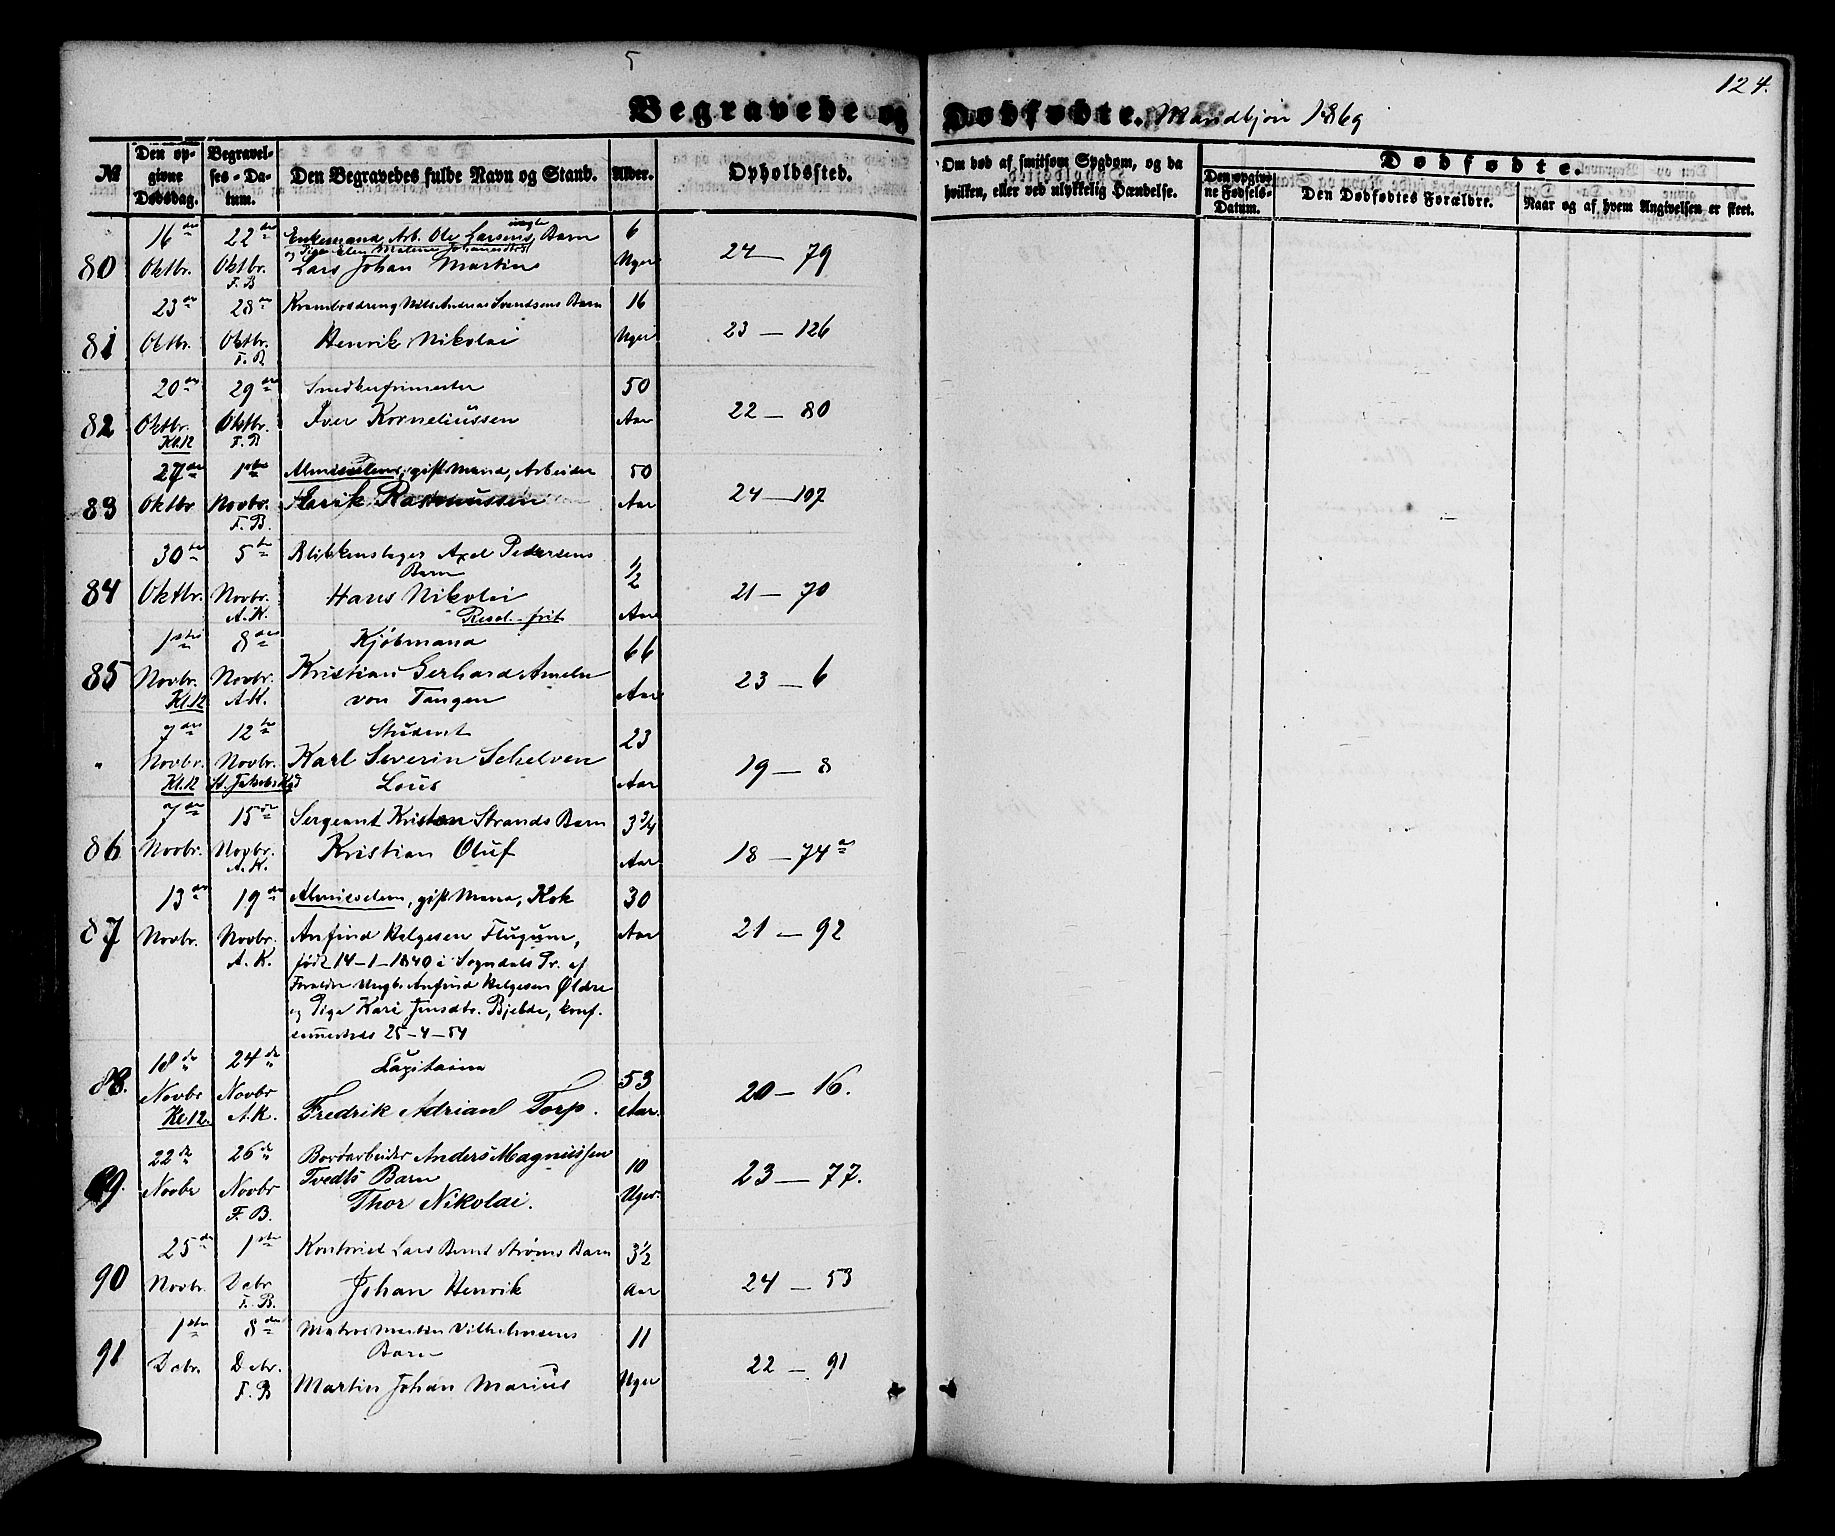 5
124.
Begravede og Dødfødte. Mandkjøn 1869
№
Den opgivne Dødsdag.
Begravelses-Datum.
Den Begravedes fulde Navn og Stand.
Alder.
Opholdssted.
Om død af smitsom Sygdom, og da hvilken, eller ved ulykkelig Hændelse.
Dødfødte.
Den opgivne Fødsels-Datum.
Den Dødfødtes Forældre.
Naar og af hvem Angivelsen er skeet.
80 16de Oktbr. 22de Oktbr. F. B. Enkemand Arb. Ole Larsens uægte Barn
og Pige Elen Malene Johannesd
Lars Johan Martin 6 Uger 24 — 79
81 23de Oktbr. 28de Oktbr. F. B. Nils Andreas Svendsens Barn
Henrik Nikolai 16 Uger 23 — 126
82 20de Oktbr. Kl. 12 29de Oktbr. F. B. Smedkerfrimester
Iver Korneliussen 50 Aar 22 — 80
83 27de Oktbr 1ste Novbr. F. B. Almisselem, gift Mand, Arbeider
Rasmussen 50 Aar 24 — 107
84 30te Oktbr. 5te Novbr. A. K. Blikkenslager Axel Pedersens
Barn
Hans Nikolai
Resd. frit 1/2 Aar 21 — 70
85 1ste Novbr. Kl. 12 8de Novbr. A. K. Kjøbmand
Kristian Gerhard Ameln
von Tangen 66 Aar 23 — 6
" 7de Novbr. Kl. 12 12te Novbr. St. Jakobs Kgd Student
Karl Severin Schelven
Lous 23 Aar 19 — 8
86 7de Novbr. 15de Novbr. A. K. Sergeant Kristen Strands Barn
Kristian Oluf 3 3/4 Aar 18 — 74a
87 13de Novbr. 19de Novbr. A. K. Almisselem, gift Mand, Kok
Anfind Helgesen Flugum,
født 14-1-1840 i Sogndals Pr. af
Forældre Ungk. Anfind Helgesen Øldre
og Pige Kari Jensdtr. Bjelde, konf.
sammesteds 25-4-54 30 Aar 21 — 92
88. 18de Novbr Kl. 12. 24de Novbr A. K. Capitain
Fredrik Adrian Torp. 53 Aar. 20 — 16.
89. 22de Novbr 26de Novbr F. B. Bordarbeider Anders Magnussen
Tvedts Barn
Thor Nikolai. 10 Uger. 23 — 77.
90 25de Novbr. 1ste Dcbr. F. B. Kontorist Lars Bernt Strøms Barn
Johan Henrik 3 1/2 Aar 24 — 53
91 1ste Dcbr. 8de Dcbr. F. B Matros Martin Vilhelmsens
Barn
Martin Johan Marius 11 Uger 22 — 91